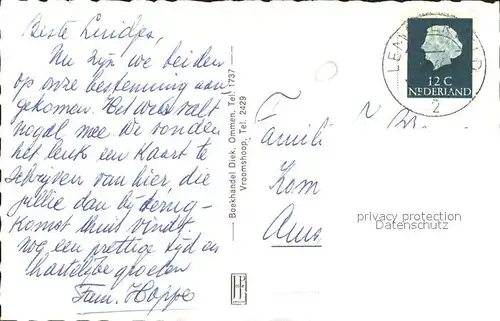 Beste Luidjes,
Nu zijn we beiden
op onze bestemming aan
gekomen. Het weer valt
nogal mee. We vonden
het leuk een kaart te
schrijven van hier, die
jullie dan bij terug-
komst thuis vindt.
nog een prettige tijd en
hartelijke groeten
Fam. Hoppe
Boekhandel Diek, Ommen, Tel. 1737
Vroomshoop, Tel. 2429
12 C
NEDERLAND
2
Famili
Kom
privacy protection
Datenschutz